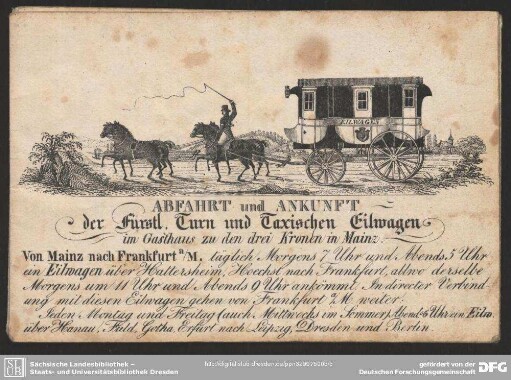 EILWAGEN
ABFAHRT und ANKUNFT
der Fürstl. Turn und Taxischen Eilwagen
im Gasthaus zu den drei Kronen in Mainz.
Von Mainz nach Frankfurt a/M. täglich Morgens 7 Uhr und Abends 5 Uhr
ein Eilwagen über Hattersheim, Hoechst nach Frankfurt, allwo derselbe
Morgens um 11 Uhr und Abends 9 Uhr ankömmt. In directer Verbind-
ung mit diesen Eilwagen gehen von Frankfurt a/M. weiter:
Jeden Montag und Freitag (auch Mittwochs im Sommer) Abends 6 Uhr ein Eilw.
über Hanau, Fuld, Gotha, Erfurt nach Leipzig, Dresden und Berlin.
SLUB
Sächsische Landesbibliothek –
Staats- und Universitätsbibliothek Dresden
gefördert von der
Deutschen Forschungsgemeinschaft
DFG